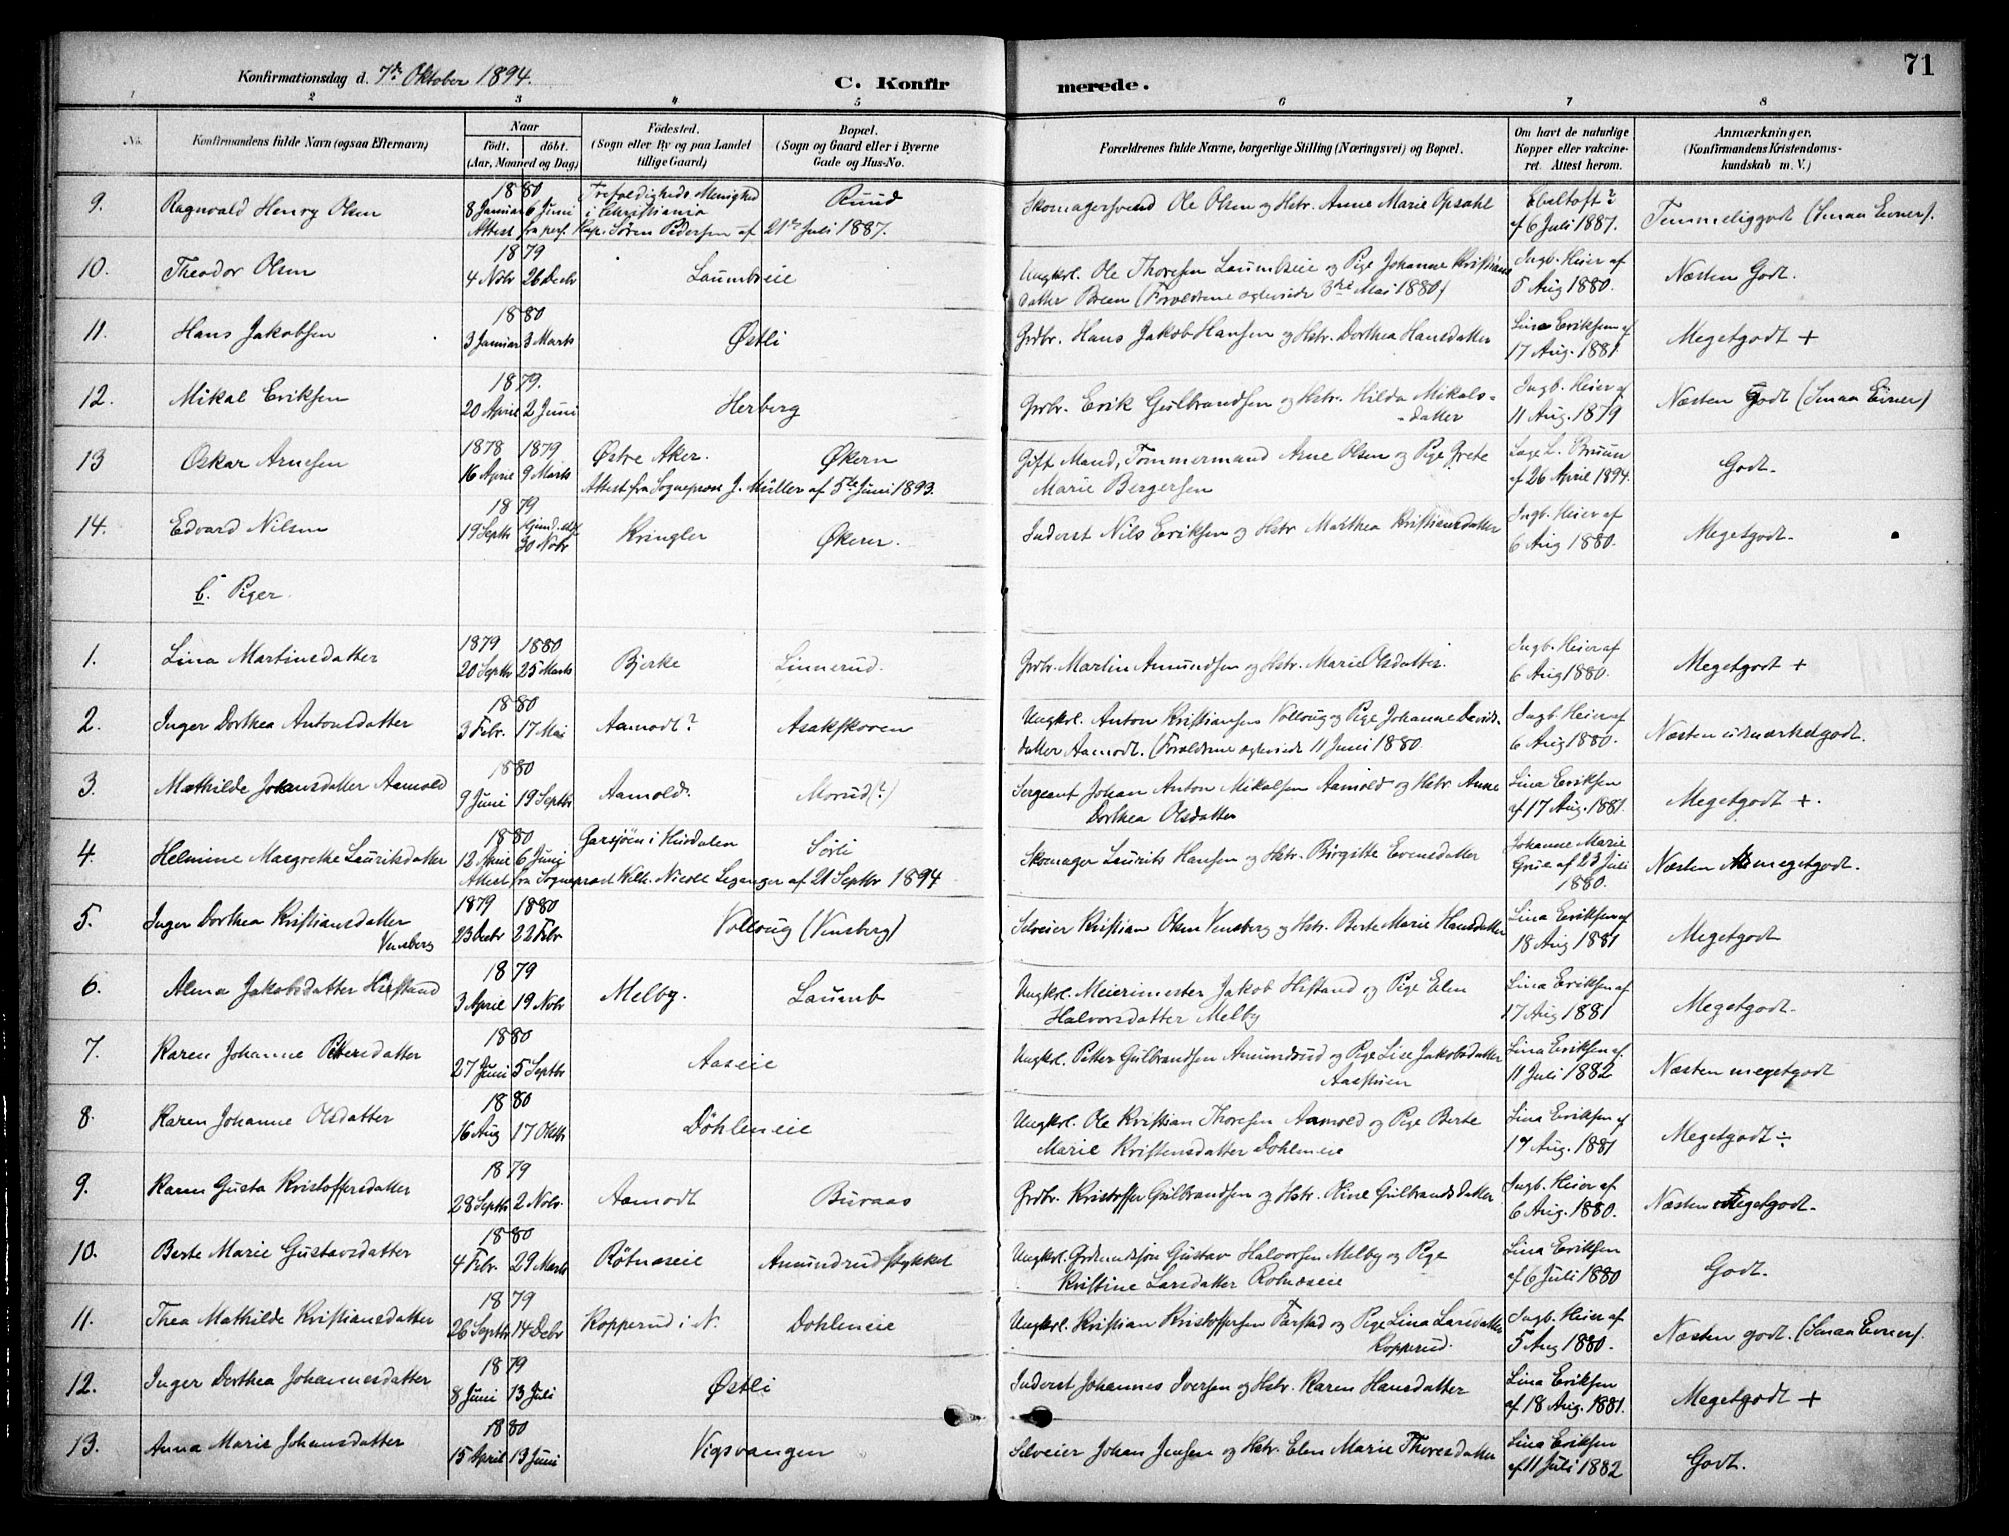 Konfirmationsdag d. 7de Oktober 1894.
C. Konfirmerede.
71
1 2 3 4 5 6 7 8
No.
Konfirmandens fulde Navn (ogsaa Efternavn)
Naar
Født. døbt.
(Aar, Maaned og Dag)
Fødested.
(Sogn eller By og paa Landet
tillige Gaard)
Bopæl.
(Sogn og Gaard eller i Byerne
Gade og Hus-No.
Forældrenes fulde Navne, borgerlige Stilling (Næringsvei) og Bopæl.
Om havt de naturlige
Kopper eller vakcine-
ret. Attest herom.
Anmærkninger.
(Konfirmandens Kristendoms-
kundskab m. V.)
9. Ragnvald Henry Olsen 1880 8 Januar 6 Juni Trefoldigheds Menighed i Christiania Ruud Skomagersvend Ole Olsen og Hstr. Anne Marie Opsahl Ebeltoft? af 6 Juli 1887. Temmeliggodt (Smaa Evner).
Attest fra pers. Kap. Søren Pedersen af 21de Juli 1887.
10. Theodor Olsen 1879 4 Nobr 26 Decbr Laumbeie Ungkrl. Ole Thoresen Laumbeie og Pige Johanne Kristians
datter Breen (Forældrene egteviede 3die Mai 1880) Ingb. Heier af 5 Aug 1880. Næsten Godt.
11. Hans Jakobsen 1880 3 Januar 3 Marts Østli Grdbr. Hans Jakob Hansen og Hstr. Dorthea Hansdatter Lina Eriksen af 17 Aug. 1881 Megetgodt +
12. Mikal Eriksen 1879. 20 April 2 Juni Herberg Grdbr. Erik Gulbrandsen og Hstr. Hilda Mikals-
-datter Ingb. Heier af 11 Aug. 1879 Næsten Godt (Smaa Evner)
13 Oskar Arnesen 1878 1879 16 April 9 Marts Østre Aker. Økern Gift Mand, Tømmermand Arne Olsen og Pige Grete
Marie Bergersen Læge L. Bruun af 26 April 1894. Godt.
Attest fra Sogneprest J. Müller af 5te Juni 1893.
14. Edvard Nilsen 1879 19 Septbr 30 Nobr Kringler Økern. Inderst Nils Eriksen og Hstr Marthea Kristiansdatter Ingb. Heier af 6 Aug 1880. Megetgodt.
b. Piger.
1. Lina Martinsdatter 1879 1880 20 Septbr 25 Marts Bjerke Linnerud. Grdbr. Martin Amundsen og Hstr. Marie Olsdatter. Ingb. Heier af 6 Aug 1880. Megetgodt +
2. Inger Dorthea Antonsdatter 1880 3 Febr. 17 Mai Aamodt? Asakskoven Ungkrl. Anton Kristiansen Vollaug og Pige Johanne Davids-
datter Aamodt. (Forældrene egteviede 11 Juni 1880 Ingb. Heier af 6 Aug 1880. Næsten udmærketgodt.
3. Mathilde Johansdatter Aamold 1880 9 Juni 19 Septbr Aamold. Morud(?) Sergeant Johan Anton Mikalsen Aamold og Hstr. Anne
Dorthea Olsdatter Lina Eriksen af 17 Aug. 1881. Megetgodt +.
4. Helmine Margrethe Lauritsdatter 1880 12 April 6 Juni Garsjøen i Hurdalen Sørli Skomager Laurits Hansen og Hstr. Birgitte Evensdatter Johanne Marie Grue af 23 Juli 1880. Næsten megetgodt.
Attest fra Sogneprest Vilh. Nicoll Leganger af 21 Septbr 1894
5. Inger Dorthea Kristiansdatter
Vensberg 1879 1880 23 Decbr 22 Febr Vollaug (Vensberg) Selveier Kristian Olsen Vensberg og Hstr. Berte Marie Hansdatter Lina Eriksen af 18 Aug 1881 Megetgodt
6. Alma Jakobsdatter Hifstand 1879 3 April 19 Nobr Melby. Laumb Ungkrl. Meierimester Jakob Hifstand og Pige Elen
Halvorsdatter Melby Lina Eriksen af 17 Aug 1881 Megetgodt.
7. Karen Johanne Petersdatter 1880 27 Juni 5 Septbr Aaseie Ungkrl. Petter Gulbrandsen Amundrud og Pige Lise Jakobsdatter
Aastuen Lina Eriksen af. 11 Juli 1882 Næsten megetgodt
8. Karen Johanne Olsdatter 1880 16 Aug 17 Oktbr Døhleneie Ungkrl. Ole Kristian Thoresen Aamold og Pige Berte
Marie Kristensdatter Dohleneie Lina Eriksen af 17 Aug. 1881 Megetgodt ÷
9. Karen Gusta Kristoffersdatter 1879 28 Septbr 2 Nobr. Aamodt Buraas Grdbr. Kristoffer Gulbrandsen og Hstr. Oline Gulbrandsdatter Ingb. Heier af 6 Aug. 1880. Næsten Megetgodt.
10. Berte Marie Gustavsdatter 1880 4 Febr. 29 Marts Røtnæseie Amundrudstykket Ungkrl. Grdmandssøn Gustav Halvorsen Melby og Pige
Kristine Larsdatter Rotnæseie Lina Eriksen af 6 Juli 1880 Godt.
11. Thea Mathilde Kristiansdatter 1879 26 Septbr 14 Decbr Kopperud i N. Dohleneie Ungkrl. Kristian Kristoffersen Farstad og Pige Lina Larsdatter
Kopperud. Ingb. Heier af 5 Aug 1880. Næsten godt. (Smaa Evner).
12. Inger Dorthea Johannesdatter 1879 8 Juni 13 Juli Østli Inderst Johannes Iversen og Hstr. Karen Hansdatter Lina Eriksen af 18 Aug. 1881. Megetgodt +
13. Anna Marie Johansdatter 1880 15 April 13 Juni Vigsvangen Selveier Johan Jensen og Hstr. Elen Marie Thoresdatter Lina Eriksen af 11 Juli 1882 Godt.